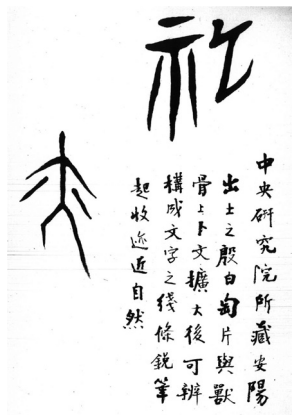 祀
中央研究院所藏安陽
出土之殷白匋片與獸
骨上卜文擴大後可辨
構成文字之綫條銳筆
起收迹近自然